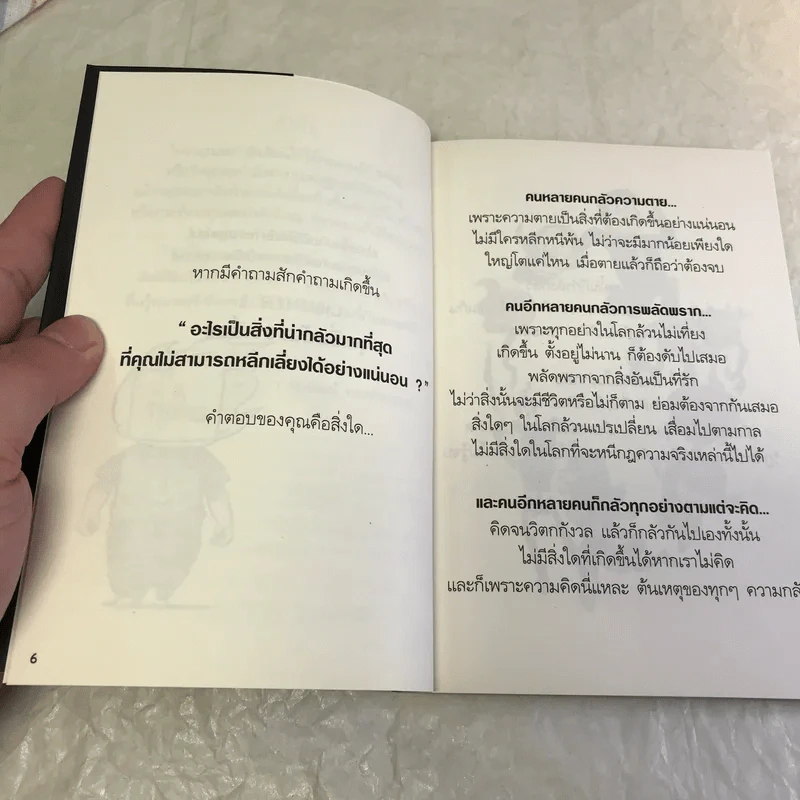 หากมีคำถามสักคำถามเกิดขึ้น
“ อะไรเป็นสิ่งที่น่ากลัวมากที่สุด
ที่คุณไม่สามารถหลีกเลี่ยงได้อย่างแน่นอน ?”
คำตอบของคุณคือสิ่งใด...
6
คนหลายคนกลัวความตาย...
เพราะความตายเป็นสิ่งที่ต้องเกิดขึ้นอย่างแน่นอน
ไม่มีใครหลีกหนีพ้น ไม่ว่าจะมีมากน้อยเพียงใด
ใหญ่โตแค่ไหน เมื่อตายแล้วก็ถือว่าต้องจบ
คนอีกหลายคนกลัวการพลัดพราก...
เพราะทุกอย่างในโลกล้วนไม่เที่ยง
เกิดขึ้น ตั้งอยู่ไม่นาน ก็ต้องดับไปเสมอ
พลัดพรากจากสิ่งอันเป็นที่รัก
ไม่ว่าสิ่งนั้นจะมีชีวิตหรือไม่ก็ตาม ย่อมต้องจากกันเสมอ
สิ่งใดๆ ในโลกล้วนแปรเปลี่ยน เสื่อมไปตามกาล
ไม่มีสิ่งใดในโลกที่จะหนีกฎความจริงเหล่านี้ไปได้
และคนอีกหลายคนก็กลัวทุกอย่างตามแต่จะคิด...
คิดจนวิตกกังวล แล้วก็กลัวกันไปเองทั้งนั้น
ไม่มีสิ่งใดที่เกิดขึ้นได้หากเราไม่คิด
และก็เพราะความคิดนี่แหละ ต้นเหตุของทุกๆ